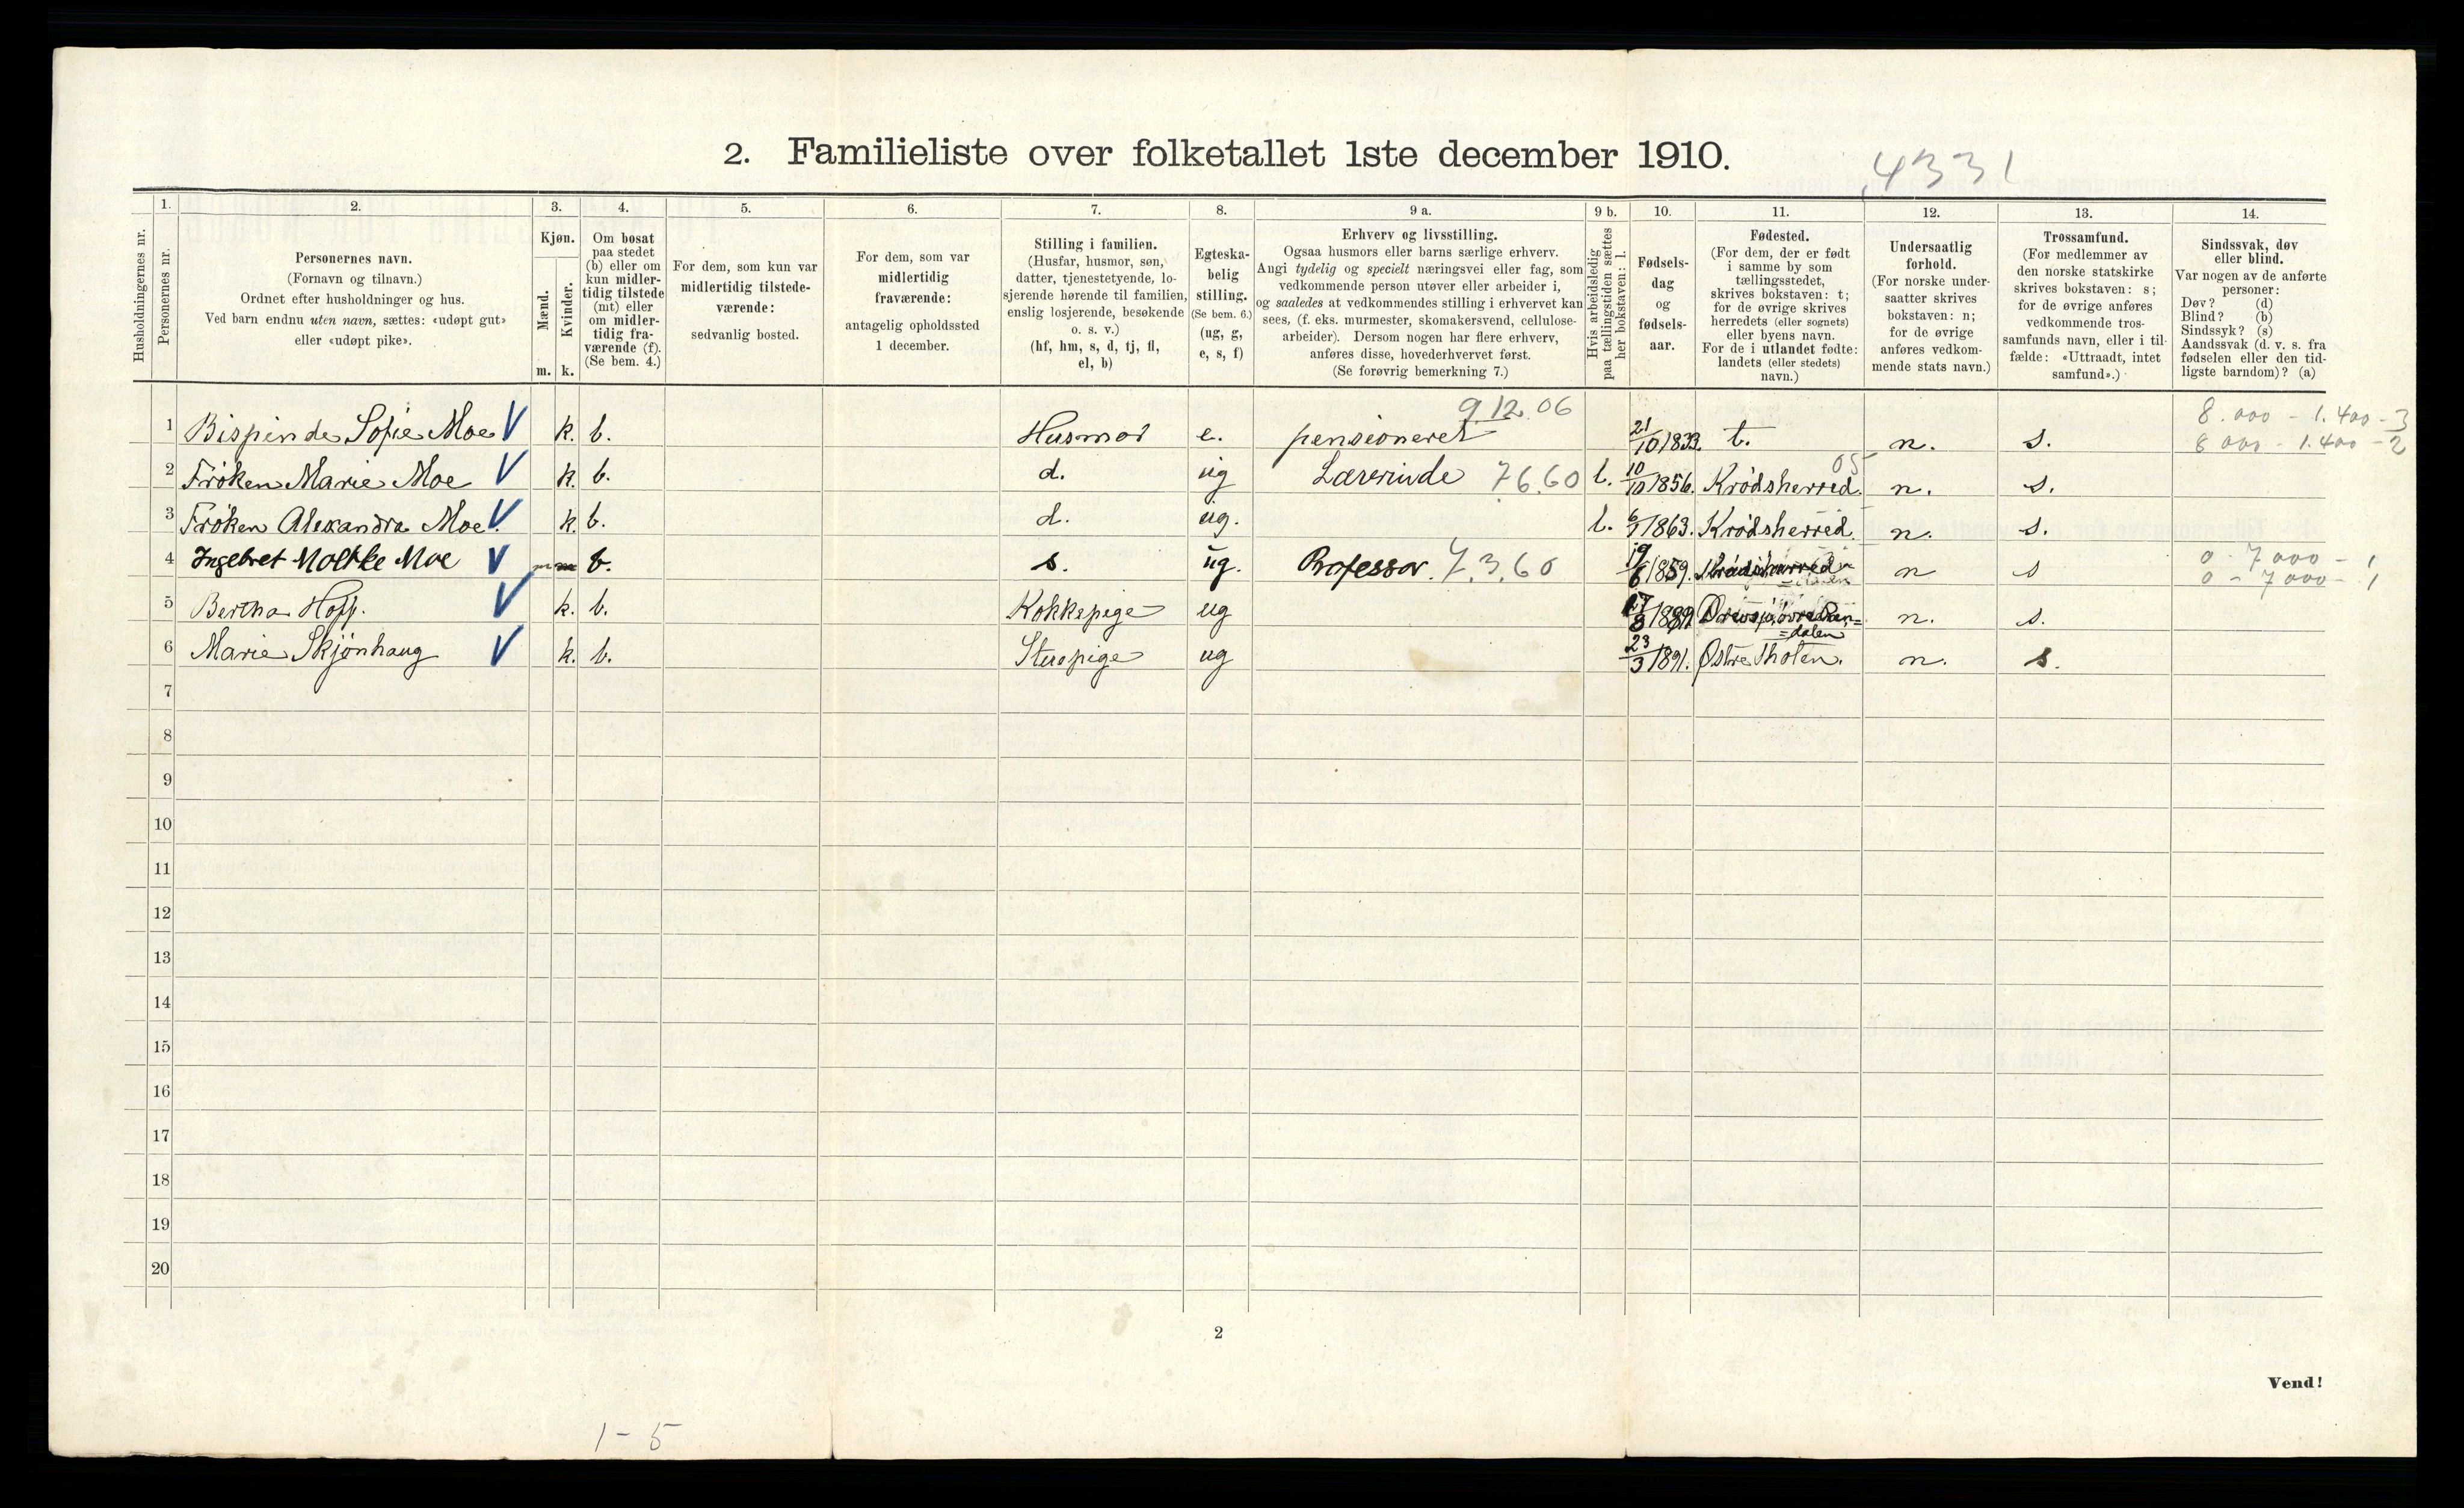 2. Familieliste over folketallet 1ste december 1910.
4331
1. 2. 3. 4. 5. 6. 7. 8. 9 a. 9 b. 10. 11. 12. 13. 14.
Husholdningernes nr.
Personernes nr.
Personernes navn.
(Fornavn og tilnavn.)
Ordnet efter husholdninger og hus.
Ved barn endnu uten navn, sættes: «udøpt gut»
eller «udøpt pike».
Kjøn.
Mænd.
Kvinder.
m. k.
Om bosat
paa stedet
(b) eller om
kun midler-
tidig tilstede
(mt) eller
om midler-
tidig fra-
værende (f).
(Se bem. 4.)
For dem, som kun var
midlertidig tilstede-
værende:
sedvanlig bosted.
For dem, som var
midlertidig
fraværende:
antagelig opholdssted
1 december.
Stilling i familien.
(Husfar, husmor, søn,
datter, tjenestetyende, lo-
sjerende hørende til familien,
enslig losjerende, besøkende
o. s. v.)
(hf, hm, s, d, tj, fl,
el, b)
Egteska-
belig
stilling.
(Se bem. 6.)
(ug, g,
e, s, f)
Erhverv og livsstilling.
Ogsaa husmors eller barns særlige erhverv.
Angi tydelig og specielt næringsvei eller fag, som
vedkommende person utøver eller arbeider i,
og saaledes at vedkommendes stilling i erhvervet kan
sees, (f. eks. murmester, skomakersvend, cellulose-
arbeider). Dersom nogen har flere erhverv,
anføres disse, hovederhvervet først.
(Se forøvrig bemerkning 7.)
Hvis arbeidsledig
paa tællingstiden sættes
her bokstaven: l.
Fødsels-
dag
og
fødsels-
aar.
Fødested.
(For dem, der er født
i samme by som
tællingsstedet,
skrives bokstaven: t;
for de øvrige skrives
herredets (eller sognets)
eller byens navn.
For de i utlandet fødte:
landets (eller stedets)
navn.)
Undersaatlig
forhold.
(For norske under-
saatter skrives
bokstaven: n;
for de øvrige
anføres vedkom-
mende stats navn.)
Trossamfund.
(For medlemmer av
den norske statskirke
skrives bokstaven: s;
for de øvrige anføres
vedkommende tros-
samfunds navn, eller i til-
fælde: «Uttraadt, intet
samfund».)
Sindssvak, døv
eller blind.
Var nogen av de anførte
personer:
Døv? (d)
Blind? (b)
Sindssyk? (s)
Aandssvak (d. v. s. fra
fødselen eller den tid-
ligste barndom)? (a)
9 12 06 8.000 - 1.400 - 3
1 Bispinde Sofie Moe V k. b. Husmor e. pensioneret 21/10 1833. t. n. s. 8 000 - 1.400 - 2
2 Frøken Marie Moe V k. b. d. ug Lærerinde 76.60 l. 10/10 1856. Krødsherred. 05 n. s.
3 Frøken Alexandra Moe. V k. b. d. ug. l. 6/1 1863. Krødsherred. n. s.
4 Ingebret Moltke Moe V m b. s. ug. Professor. 7.3.60 19/6 1859. Krødsherred n s 0 - 7000 - 1
0 - 7000 - 1
5 Bertha Hoff. V k. b. Kokkepige ug 1889 n. s.
=dalen
6 Marie Skjønhaug V k. b. Stuepige ug 23/3 1891. Østre Thoten. n. s.
7
8
9
10
11
12
13
14
15
16
17
18
19
20
2
Vend!
1 - 5